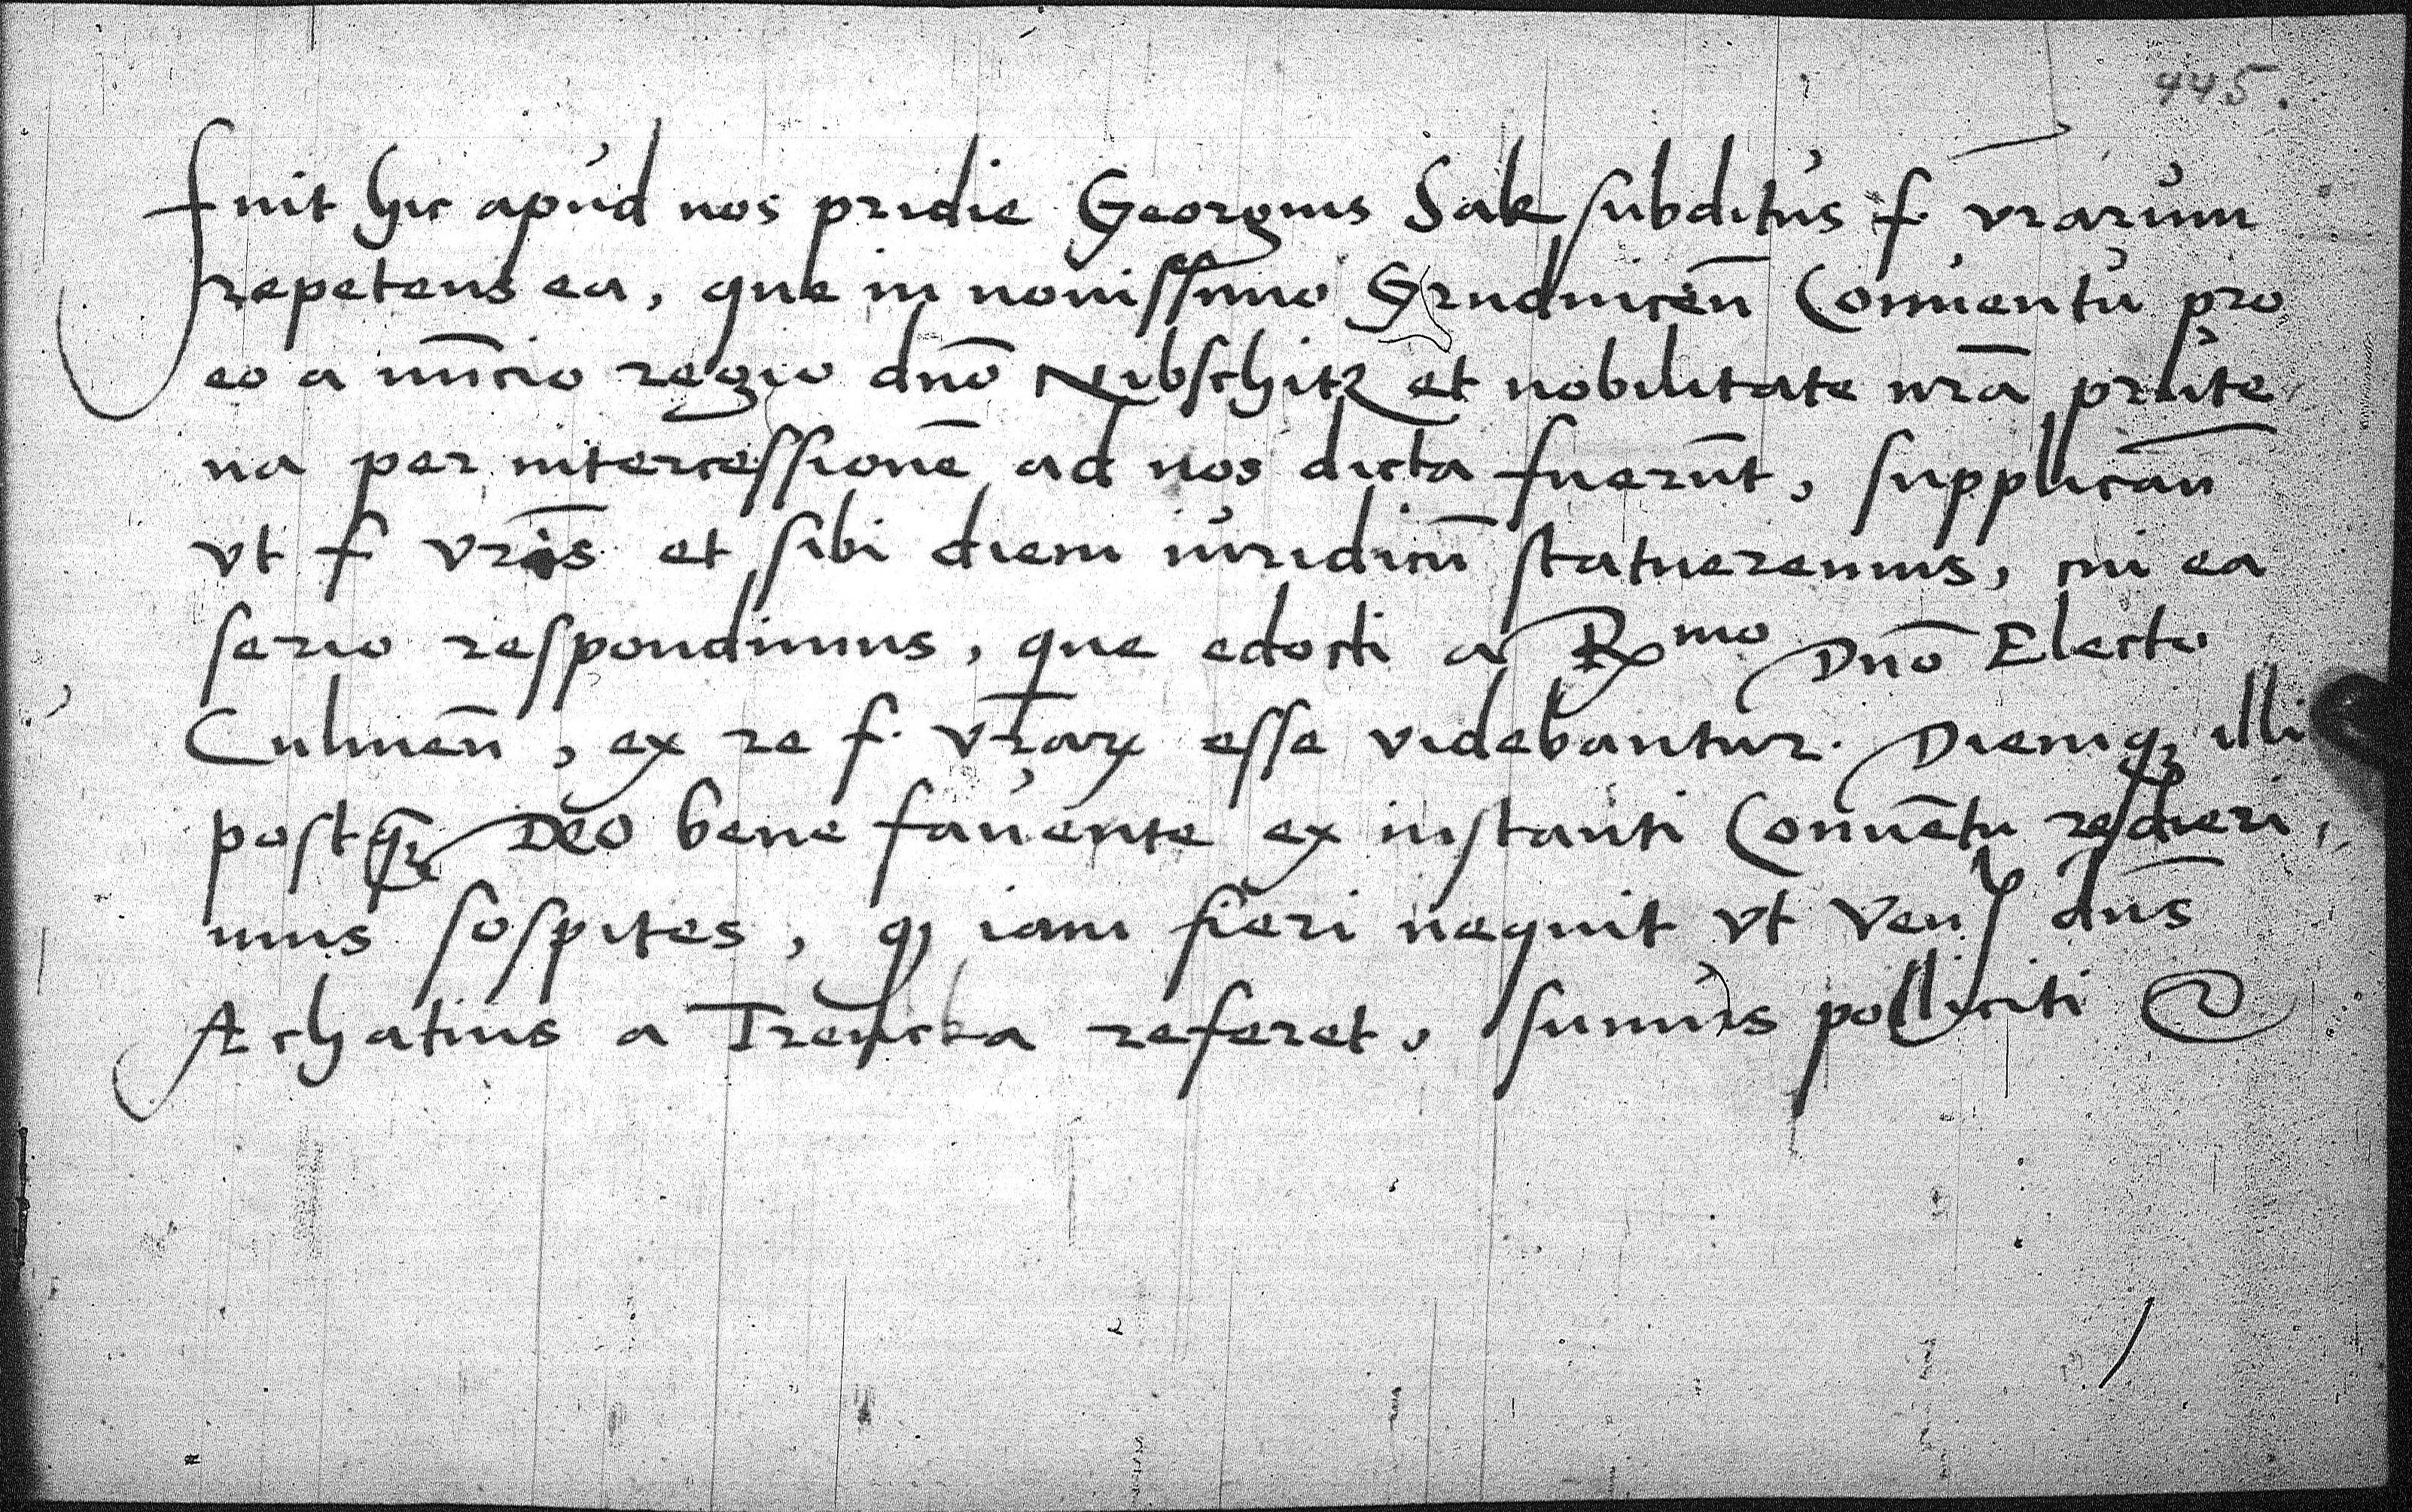 445.
Fuit hic apud nos pridie Georgius Sak subditus f. vrarum
repetens ea, que in nouissimo Grudnicen̄ Conuentu pro
eo a nūcio regio dno̅ Nibschitz et nobilitate nrā prute
na per intercessionē ad nos dicta fuerūt, supplican̄
vt f vris̄ et sibi diem iuridicū statueremus, cui ea
serio respondimus, que edocti a Rmo Dno̅ Electo
Culmen̄, ex re f. vrarꝝ esse videbantur. Diemqꝫ illi
postq̄ꝫ Deo bene fauente ex instanti Conuētu redieri,
mus sospites, qꝫ iam fieri nequit vt Ven dns̄
Achatius a Trencka referet, sumus polliciti